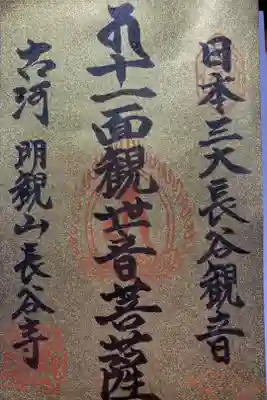 日本三大長谷観音
十一面観世音菩薩
古河 明観山長谷寺